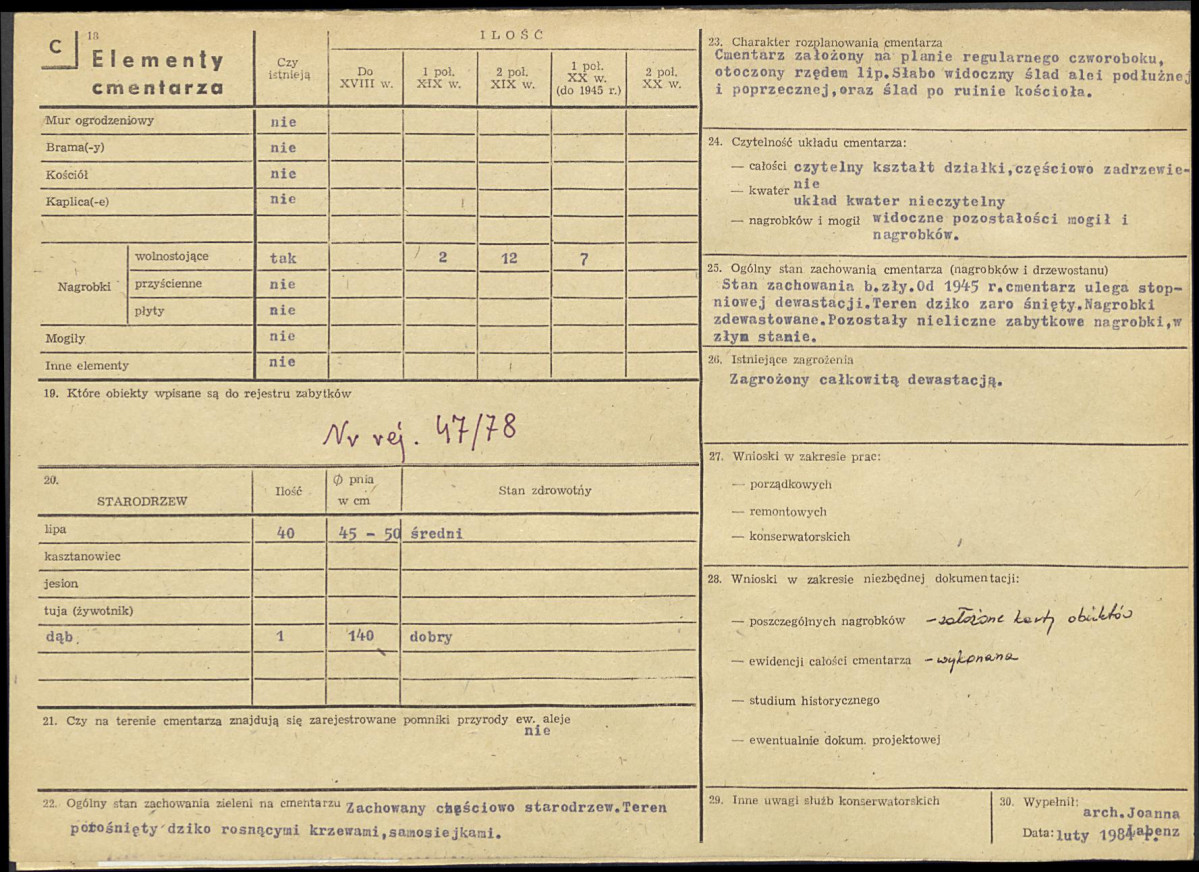 C
18
Elementy
cmentarza
Czy
istnieją
ILOŚĆ
Do
XVIII w.
1 poł.
XIX w.
2 poł.
XIX w.
1 poł.
XX w.
(do 1945 r.)
2 poł.
XX w.
Mur ogrodzeniowy nie
Brama(-y) nie
Kościół nie
Kaplica(-e) nie
Nagrobki
wolnostojące tak 2 12 7
przyścienne nie
płyty nie
Mogiły nie
Inne elementy nie
19. Które obiekty wpisane są do rejestru zabytków
Nr rej. 47/78
20.
STARODRZEW
Ilość
Ø pnia
w cm
Stan zdrowotny
lipa 40 45 - 50 średni
kasztanowiec
jesion
tuja (żywotnik)
dąb 1 140 dobry
21. Czy na terenie cmentarza znajdują się zarejestrowane pomniki przyrody ew. aleje
nie
22. Ogólny stan zachowania zieleni na cmentarzu Zachowany częściowo starodrzew.Teren
porośnięty dziko rosnącymi krzewami,samosiejkami.
23. Charakter rozplanowania cmentarza
Cmentarz założony na planie regularnego czworoboku,
otoczony rzędem lip.Słabo widoczny ślad alei podłużnej
i poprzecznej,oraz ślad po ruinie kościoła.
24. Czytelność układu cmentarza:
— całości czytelny kształt działki,częściowo zadrzewie-
nie
— kwater
układ kwater nieczytelny
— nagrobków i mogił widoczne pozostałości mogił i
nagrobków.
25. Ogólny stan zachowania cmentarza (nagrobków i drzewostanu)
Stan zachowania b.zły.Od 1945 r.cmentarz ulega stop-
niowej dewastacji.Teren dziko zaro śnięty.Nagrobki
zdewastowane.Pozostały nieliczne zabytkowe nagrobki,w
złym stanie.
26. Istniejące zagrożenia
Zagrożony całkowitą dewastacją.
27. Wnioski w zakresie prac:
— porządkowych
— remontowych
— konserwatorskich
28. Wnioski w zakresie niezbędnej dokumentacji:
— poszczególnych nagrobków - założone karty obiektów
— ewidencji całości cmentarza - wykonana
— studium historycznego
— ewentualnie dokum. projektowej
29. Inne uwagi służb konserwatorskich
30. Wypełnił:
arch.Joanna
Łabenz
Data: luty 1984 r.